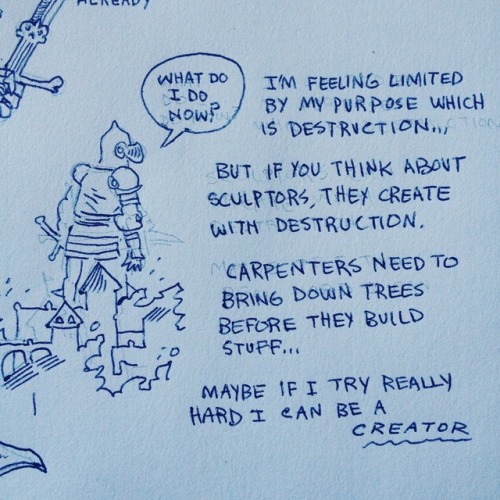 ALREADY
WHAT DO
I DO
NOW?
I'M FEELING LIMITED
BY MY PURPOSE WHICH
IS DESTRUCTION...
BUT IF YOU THINK ABOUT
SCULPTORS, THEY CREATE
WITH DESTRUCTION.
CARPENTERS NEED TO
BRING DOWN TREES
BEFORE THEY BUILD
STUFF...
MAYBE IF I TRY REALLY
HARD I CAN BE A
CREATOR